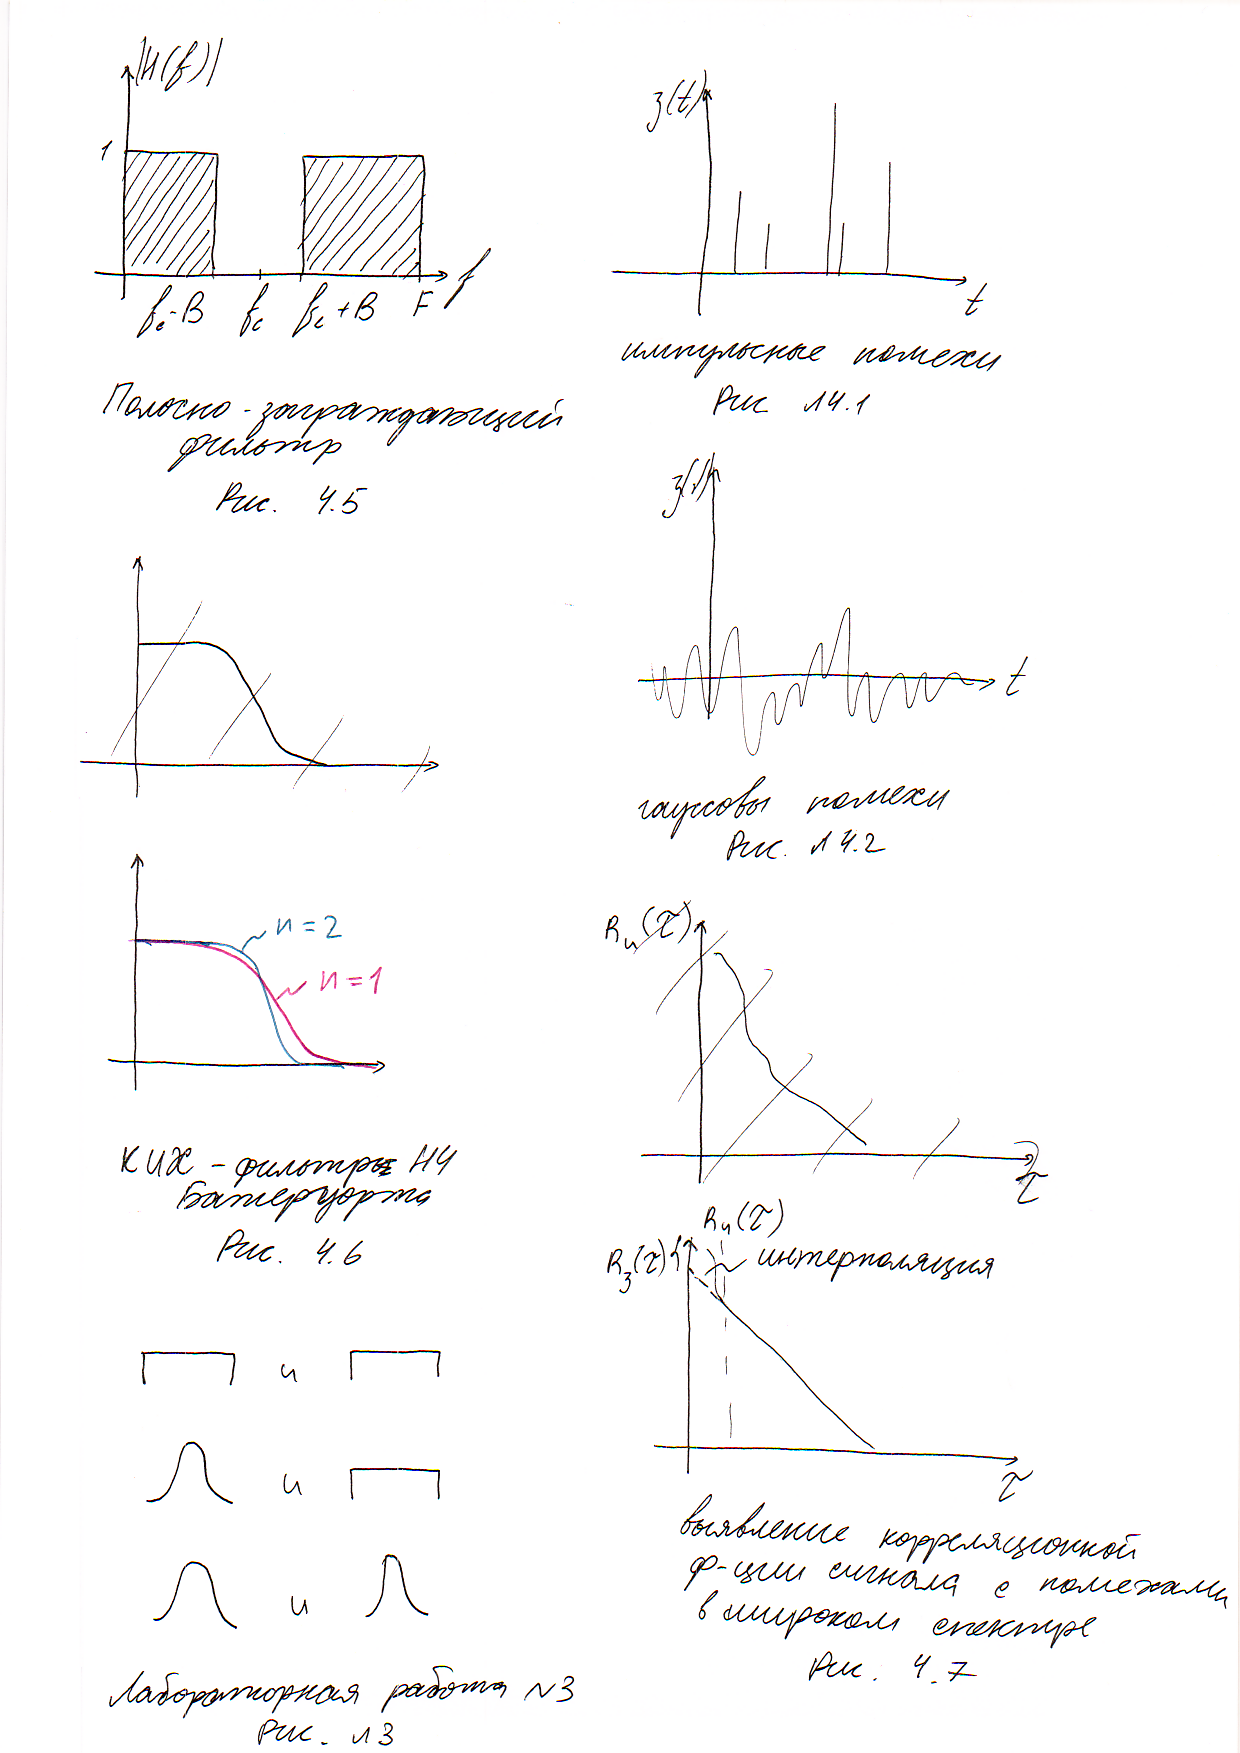 |H(f)|
1
f
fc-B fc fc+B F
Полосно-заграждающий
фильтр
Рис. 4.5
n=2
n=1
КИХ-фильтры НЧ
Батеруорта
Рис. 4.6
и
и
и
Лабораторная работа №3
Рис. Л3
з(t)
t
импульсные помехи
Рис Л4.1
з(t)
t
гауссовы помехи
Рис. Л4.2
Rи(τ)
τ
Rи(τ)
Rз(τ)
интерполяция
τ
выявление корреляционной
ф-ции сигнала с помехами
в широком спектре
Рис. 4.7